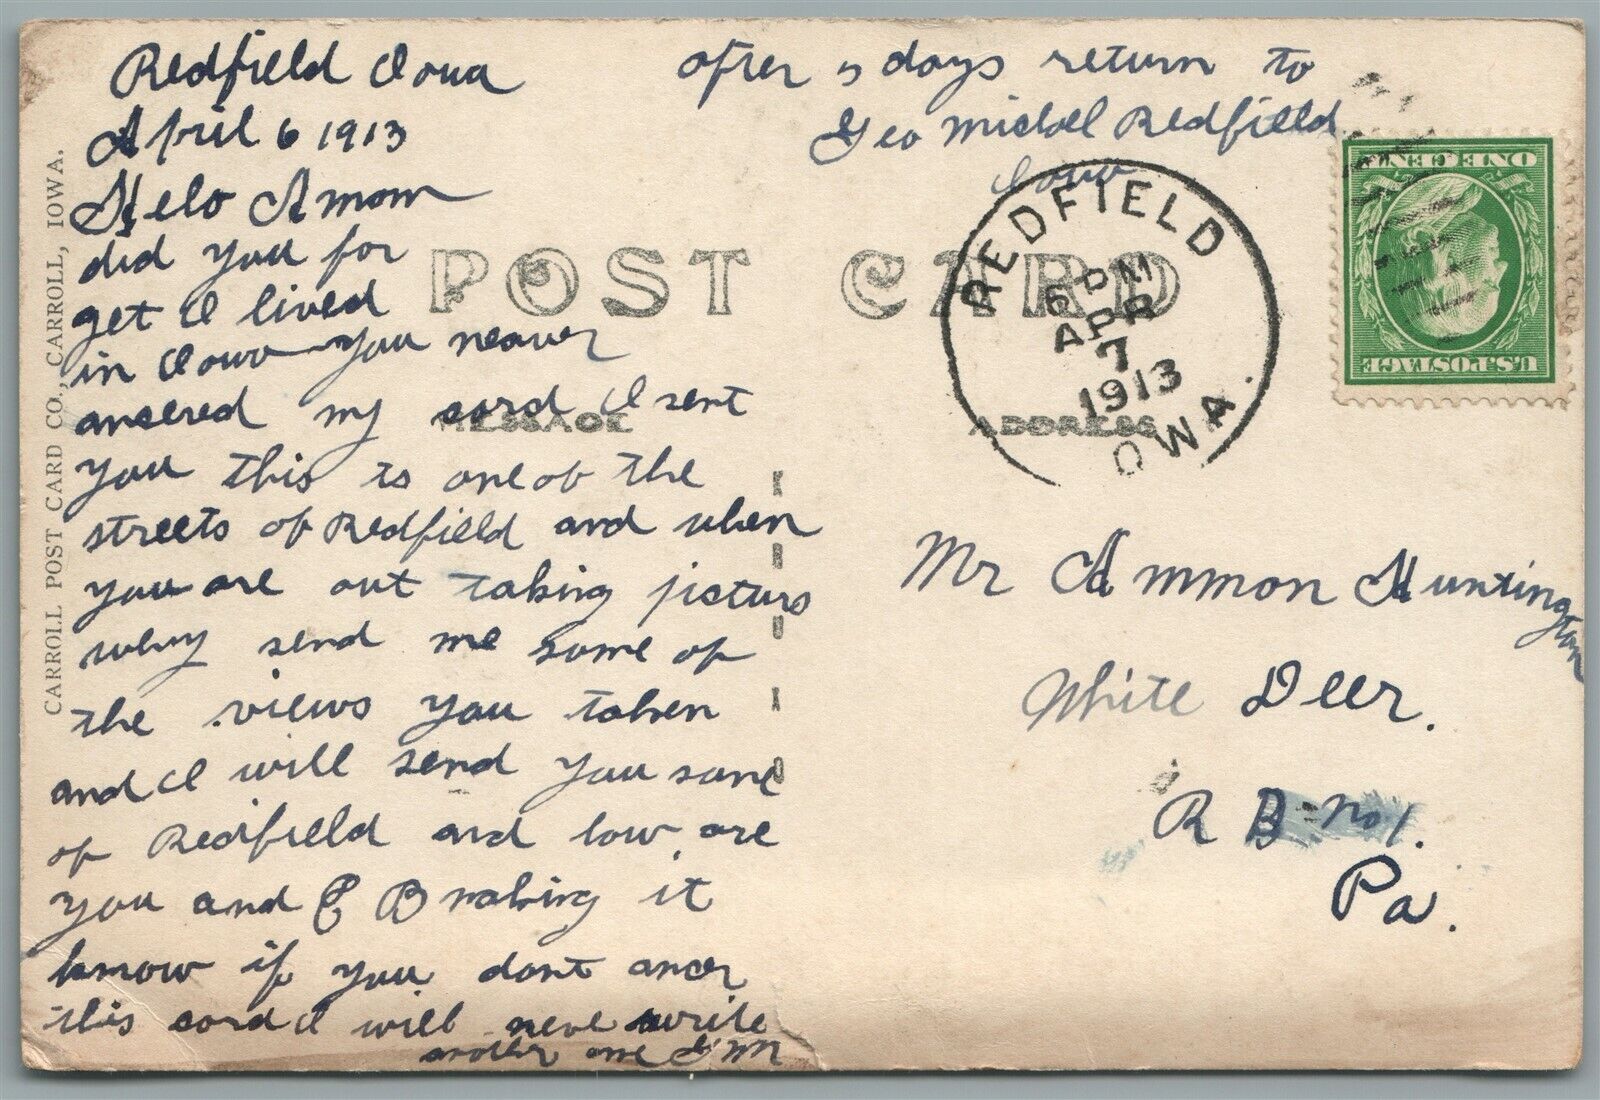 Redfield Iowa
April 6 1913
Helo Amon
did you for
get I lived
in Iowa you neaver
ancered my card I sent
you this is one of the
streets of Redfield and when
you are out taking picturs
why send me some of
the views you taken
and I will send you some
of Redfield and how are
you and E B making it
know if you dont ancer
this card I will neve write
another one G M
after 5 days return to
Geo Michael Redfield
Iowa
POST CARD
MESSAGE
ADDRESS
REDFIELD
6 PM
APR
7
1913
OWA.
ONE CENT
U.S. POSTAGE
Mr Ammon Huntington
White Deer.
R D No 1.
Pa.
CARROLL POST CARD CO., CARROLL, IOWA.